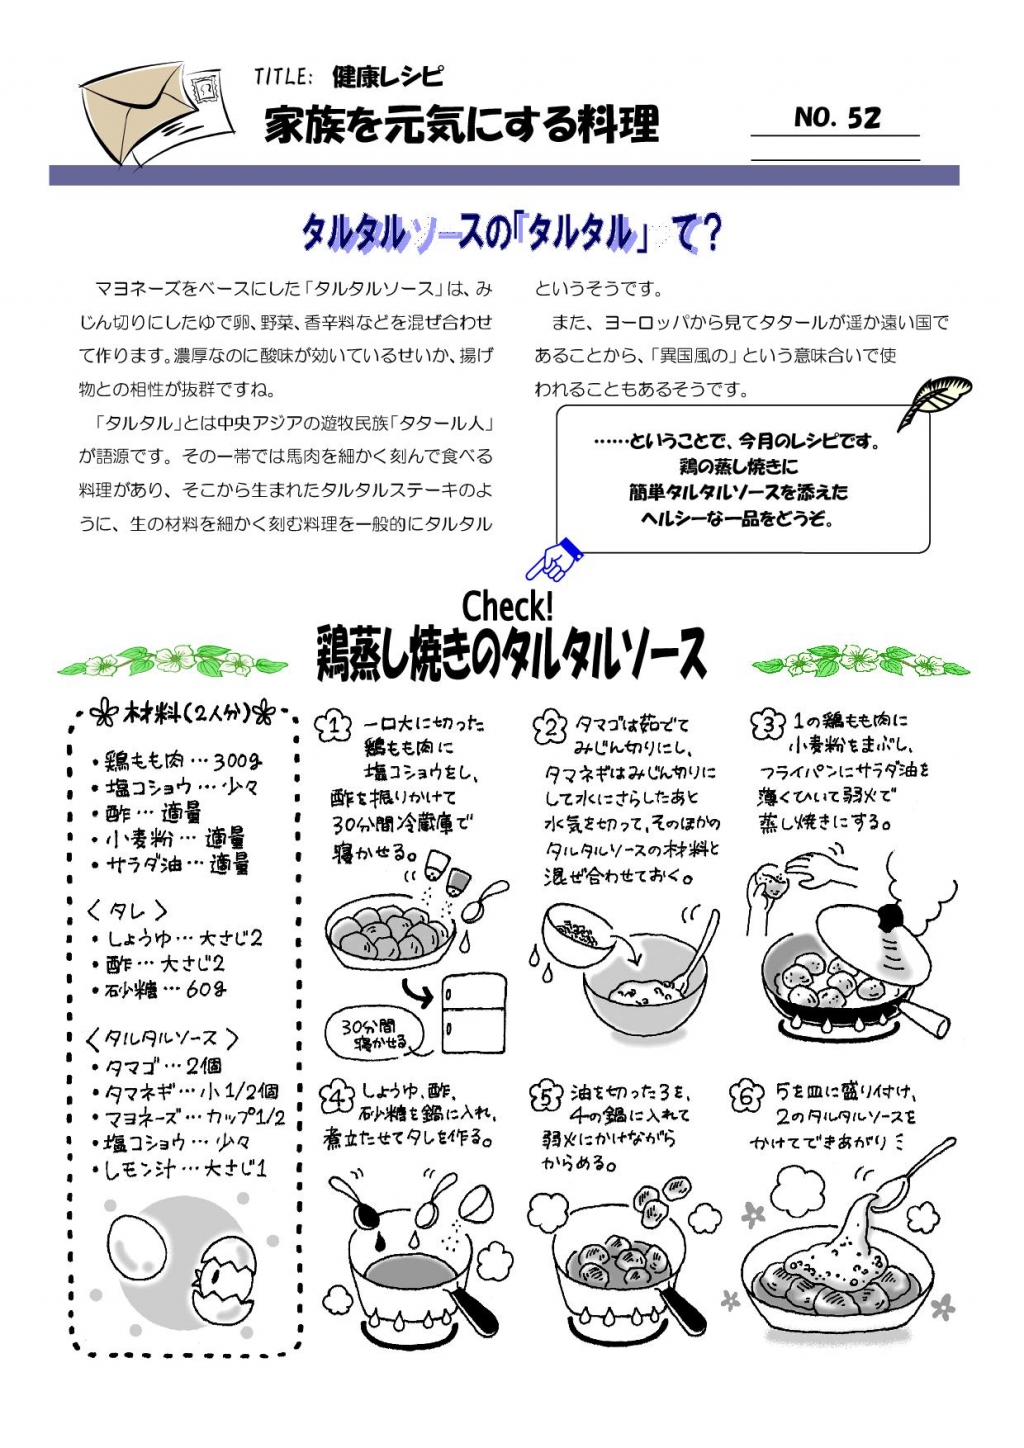 TITLE: 健康レシピ
家族を元気にする料理
NO. 52
タルタルソースの「タルタル」って？
マヨネーズをベースにした「タルタルソース」は、み
じん切りにしたゆで卵、野菜、香辛料などを混ぜ合わせ
て作ります。濃厚なのに酸味が効いているせいか、揚げ
物との相性が抜群ですね。
「タルタル」とは中央アジアの遊牧民族「タタール人」
が語源です。その一帯では馬肉を細かく刻んで食べる
料理があり、そこから生まれたタルタルステーキのよ
うに、生の材料を細かく刻む料理を一般的にタルタル
というそうです。
また、ヨーロッパから見てタタールが遥か遠い国で
あることから、「異国風の」という意味合いで使
われることもあるそうです。
……ということで、今月のレシピです。
鶏の蒸し焼きに
簡単タルタルソースを添えた
ヘルシーな一品をどうぞ。
Check!
鶏蒸し焼きのタルタルソース
材料(2人分)
・鶏もも肉…300g
・塩コショウ…少々
・酢…適量
・小麦粉…適量
・サラダ油…適量
〈タレ〉
・しょうゆ…大さじ2
・酢…大さじ2
・砂糖…60g
〈タルタルソース〉
・タマゴ…2個
・タマネギ…小1/2個
・マヨネーズ…カップ1/2
・塩コショウ…少々
・レモン汁…大さじ1
1 一口大に切った
鶏もも肉に
塩コショウをし、
酢を振りかけて
30分間冷蔵庫で
寝かせる。
30分間
寝かせる
2 タマゴは茹でて
みじん切りにし、
タマネギはみじん切りに
して水にさらしたあと
水気を切って、そのほかの
タルタルソースの材料と
混ぜ合わせておく。
3 1の鶏もも肉に
小麦粉をまぶし、
フライパンにサラダ油を
薄くひいて弱火で
蒸し焼きにする。
4 しょうゆ、酢、
砂糖を鍋に入れ、
煮立たせてタレを作る。
5 油を切った3を、
4の鍋に入れて
弱火にかけながら
からめる。
6 5を皿に盛り付け、
2のタルタルソースを
かけてできあがり